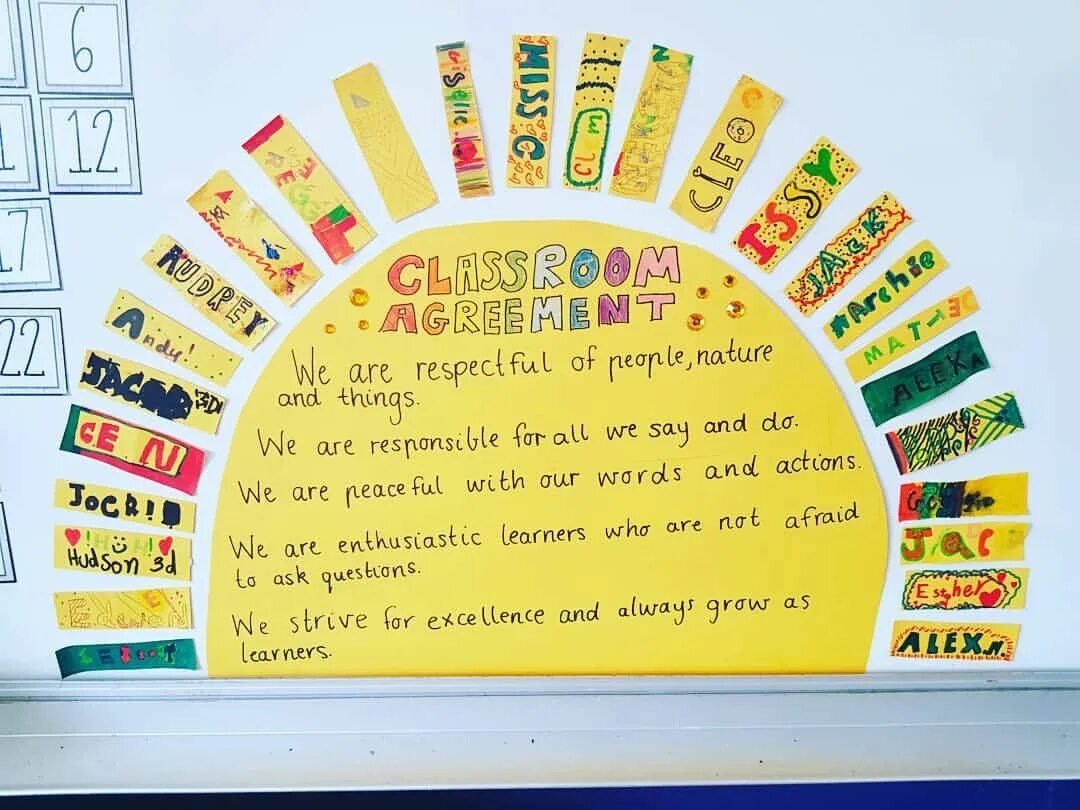 6
12
17
22
CLASSROOM
AGREEMENT
We are respectful of people, nature
and things.
We are responsible for all we say and do.
We are peaceful with our words and actions.
We are enthusiastic learners who are not afraid
to ask questions.
We strive for excellence and always grow as
learners.
Hudson 3d
JOCK!
CEN
JACOB 3D
Andy!
AUDREY
MISS C
Clem
CLEO
ISSY
JACK
Archie
MATIE
AEEKA
Jac
Esther
ALEX.N.